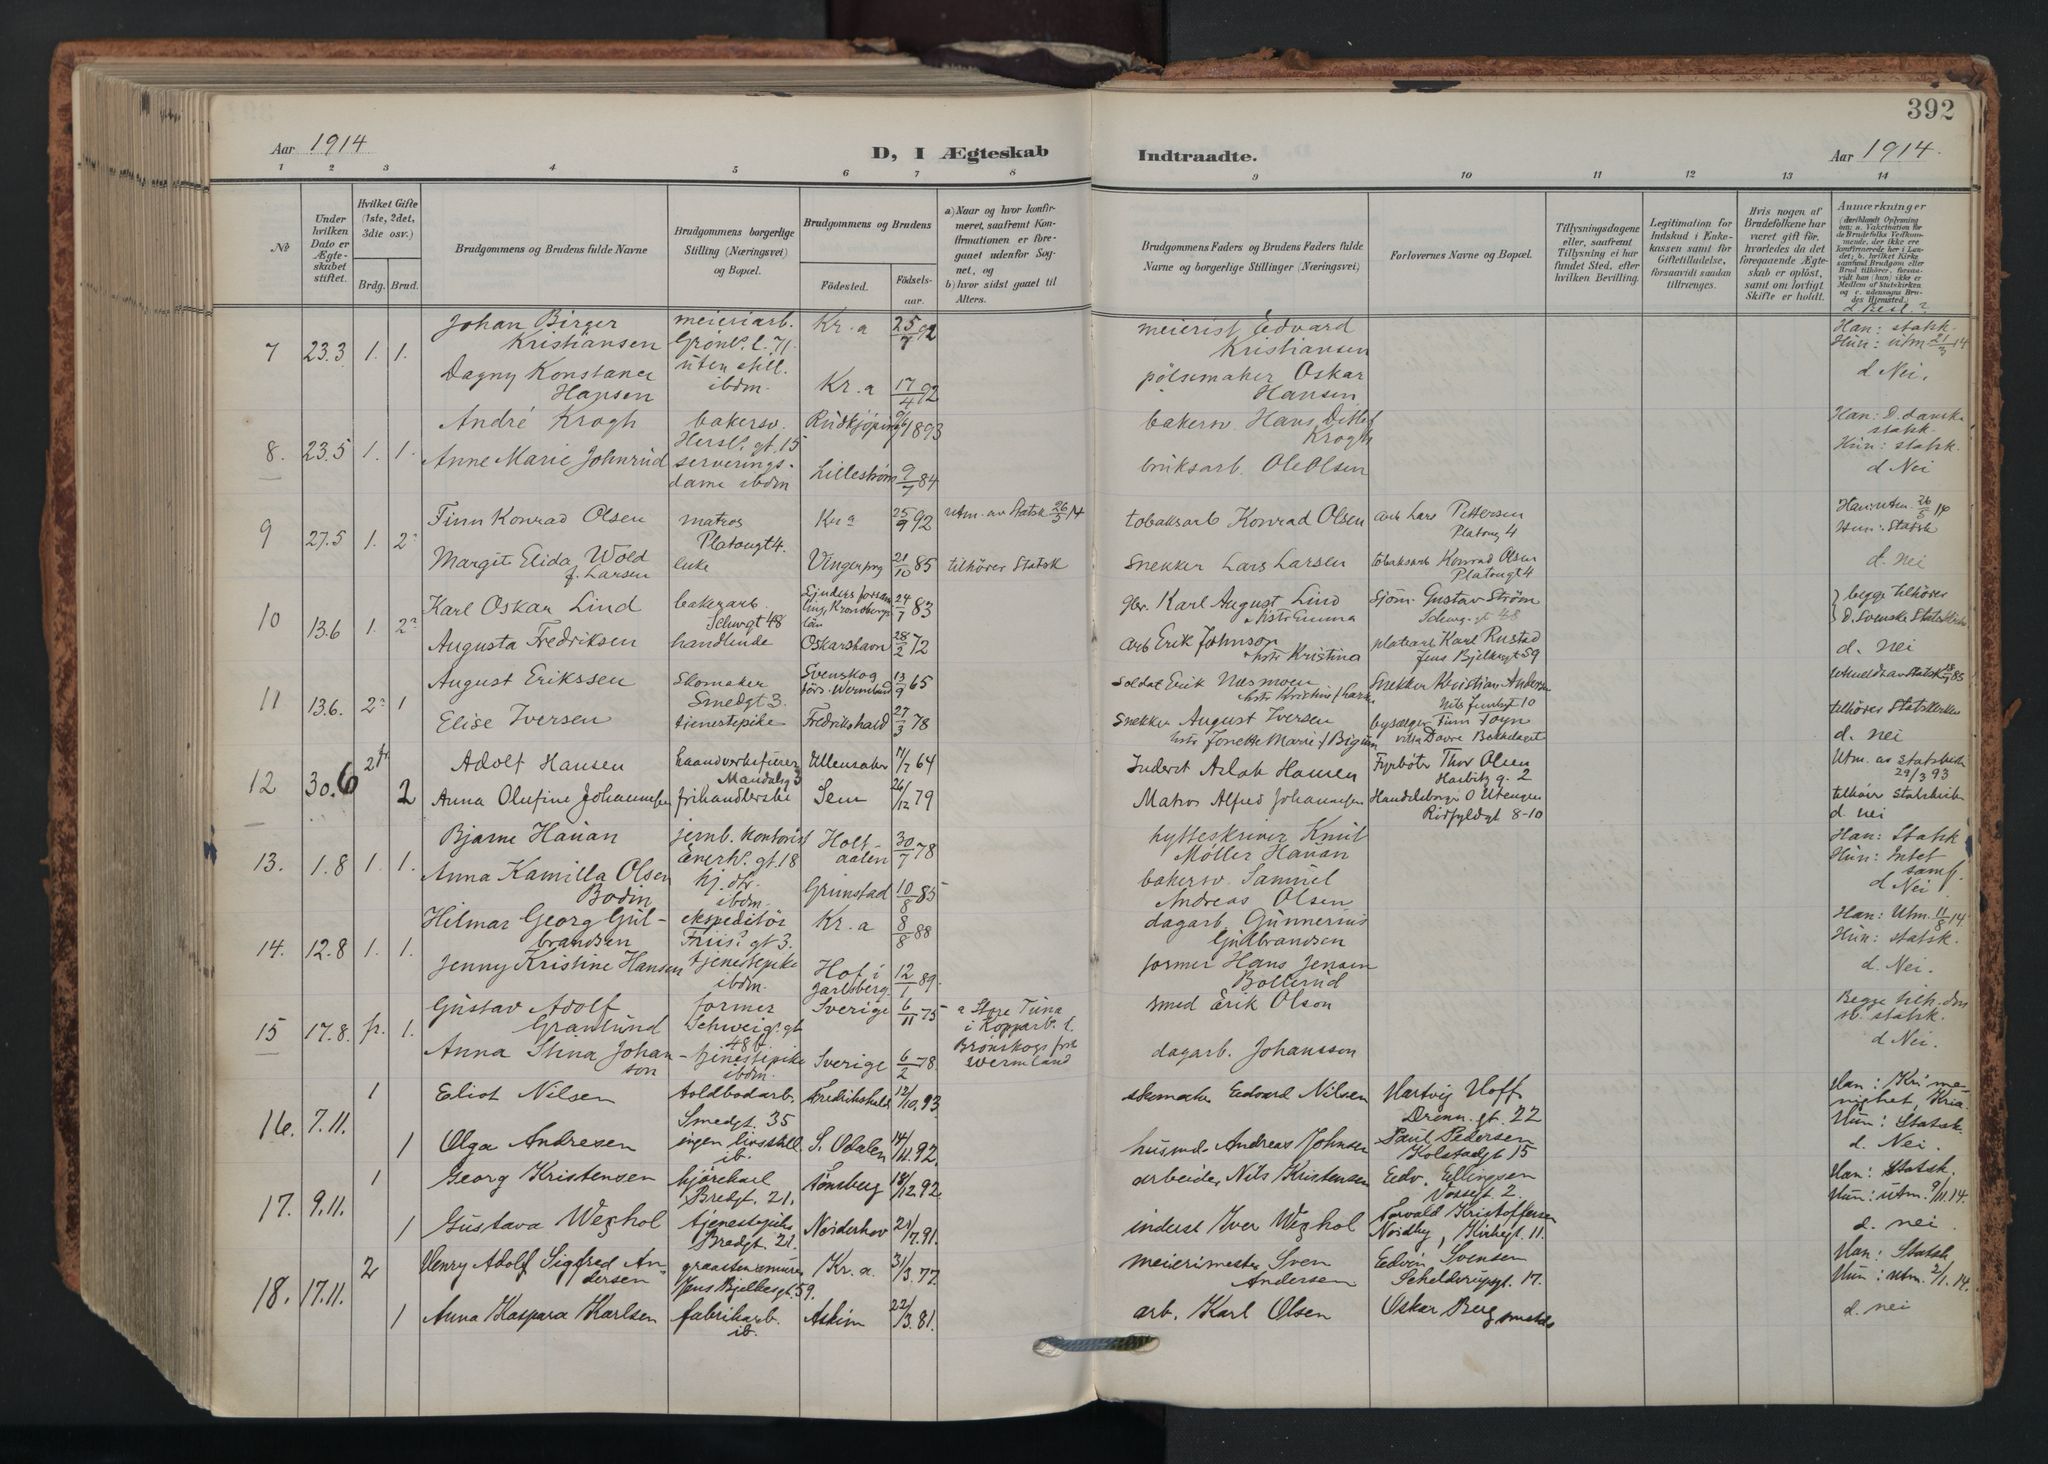 392
Aar 1914
D, I Ægteskab
Indtraadte.
Aar 1914.
1 2 3 4 5 6 7 8 9 10 11 12 13 14
No
Under hvilken Dato er Ægteskabet stiftet.
Hvilket Gifte (1ste, 2det, 3die osv.)
Brdg. Brud.
Brudgommens og Brudens fulde Navne
Brudgommens borgerlige Stilling (Næringsvei) og Bopæl.
Brudgommens og Brudens
Fødested.
Fødselsaar.
a) Naar og hvor konfirmeret, saafremt Konfirmationen er foregaaet udenfor Sognet, og
b) hvor sidst gaaet til Alters.
Brudgommens Faders og Brudens Faders fulde Navne og borgerlige Stillinger (Næringsvei)
Forlovernes Navne og Bopæl.
Tillysningsdagene eller, saafremt Tillysning ei har fundet Sted, efter hvilken Bevilling.
Legitimation for Indskud i Enkekassen samt for Giftetilladelse, forsaavidt saadan tiltrænges.
Hvis nogen af Brudefolkene har været gift før, hvorledes da det foregaaende Ægteskab er opløst, samt om lovligt Skifte er holdt.
Anmærkninger
7 23.3 1. 1.
Johan Birger Kristiansen
meieriarb. Grønl. l. 71.
Kr.a 25/7 92
meierist Edvard Kristiansen
Han: statsk.
Hun: utm 21/3 14
Dagny Konstance Hansen
uten still. ibdm.
Kr.a 17/4 92
pølsemaker Oskar Hansen
d Nei.
8. 23.5 1. 1.
André Krogh
bakersv. Hersl. gt. 15
Rudkjøping 9/6 1893
bakersv. Hans Ditlef Krogh
Han: D. danske statsk.
Hun: statsk.
Anne Marie Johnrud
serveringsdame ibdm
Lillestrøm 9/7 84
bruksarb. Ole Olsen
d Nei
9 27.5 1. 2
Finn Konrad Olsen
matros Platougt 4.
Kra 25/9 92
utm. av Statsk. 26/5 14
tobaksarb Konrad Olsen
arb Lars Pettersen Platoug 4
Han: utm. 26/5 14
Hun: Statsk
Margit Elida Wold f. Larsen
enke
Vinger prg 21/10 85
tilhører Statsk
Snekker Lars Larsen
tobaksarb Konrad Olsen Platougt 4
d. nei
10 13.6 1. 2
Karl Oskar Lind
bakerarb. Schwgt 48
24/7 83
gbr. Karl August Lind
Sjøm. Gustav Strøm Schwg. gt 48
begge tilhører D. Svenske Statskirke
Augusta Fredriksen
handlende
Oskarshavn 28/2 72
arb Erik Johnson
hstr Kristina
platearb Karl Rustad
Jens Bjelkegt 59
d. nei
11 13.6. 2 1
August Erikssen
Skomaker Smedgt 3.
Svenskogførs. Wermland 13/9 65
Soldat Erik Næsmoen
Snekker Kristian Andersen
Elise Iversen
tjenestepike
Fredrikshald 27/3 78
Snekker August Iversen
tilhører Statskirken
d. nei
12 30.6 2 2
Adolf Hansen
haandverksfører Mandalsg 3
Ullensaker 11/7 64
Inderst Aslak Hansen
Fyrbøter Thor Olsen
Harbitz g. 2
Utm. av Statskirk 29/3 93
Anna Olufine Johannesen
frihandlerske
Sem 26/12 79
Matros Alfred Johannesen
Rosfyldgt 8-10
tilhører Statskirken
d. nei
13. 1.8 1. 1.
Bjarne Hauan
jernb. kontorist Enerh. gt. 18
Holtaalen 30/7 78
hytteskriver Knut Møller Hauan
Han: Statsk
Hun: Intet samf.
Anna Kamilla Olsen Bodin
hj. dtr. ibdm.
Grimstad 10/8 85
bakersv. Samuel Andreas Olsen
d Nei
14. 12.8 1. 1.
Hilmar Georg Gulbrandsen
ekspeditør Friis. gt 3.
Kr.a 8/8 88
dagarb. Gunnerius Gulbrandsen
Han: Utm. 11/8 14.
Hun: statsk.
Jenny Kristine Hansen
tjenestepike ibdm.
Hof i Jarlsberg. 12/1 89.
former Hans Jensen Bollerud
d. Nei.
15 17.8. 1.
Gustav Adolf Granlund
former Schweigs. gt 48b.
Sverige 6/11 75
a Store Tuna i Kopparb. l.
smed Erik Olson
Begge tilh. den sv. statsk.
Anna Stina Johansson
tjenestepike ibdm.
Sverige 6/2 78.
Brunskogs fors Wermland
dagarb. Johansson
d Nei.
16. 7.11. 1
Eliot Nilsen
toldbodarb. Smedgt. 35
Fredrikshald 12/10.93
skomaker Edvard Nilsen
Hartvig Hoff
Dronn. gt. 22
Han: Kri menighet, Kria.
Hun: Statsk.
1
Olga Andresen
ingen livsstill. ib.
S. Odalen 14/11.92.
husmd. Andreas Johnsen
Paul Pedersen
Kolstadgt 15
d. Nei
17. 9.11. 1
Georg Kristensen
kjørekarl Bredgt. 21.
Tønsberg 18/12.92.
arbeider Nils Kristensen
Edv. Ellingsen
Vossegt. 2.
Han: Statsk.
Hun: utm. 9/11.14.
1
Gustava Wezhol
tjenestepike Bredgt. 21.
Norderhov 21/7.91.
inderst Iver Wezhol
Torvald Kristoffersen
Nordby, Kirkegt. 11.
d. nei
18. 17.11. 2
Henry Adolf Sigfred Andersen
graastensmurer Jens Bjelkesgt. 59.
Kr.a. 31/3.77.
meierimester Sven Andersen
Edvin Svensen
Schelderupsgt. 17.
Han: Statsk.
Hun: utm. 2/1.14.
1
Anna Kaspara Karlsen
fabrikarb. ib.
Askim 22/3.81.
arb. Karl Olsen
Oskar Berg
d. nei